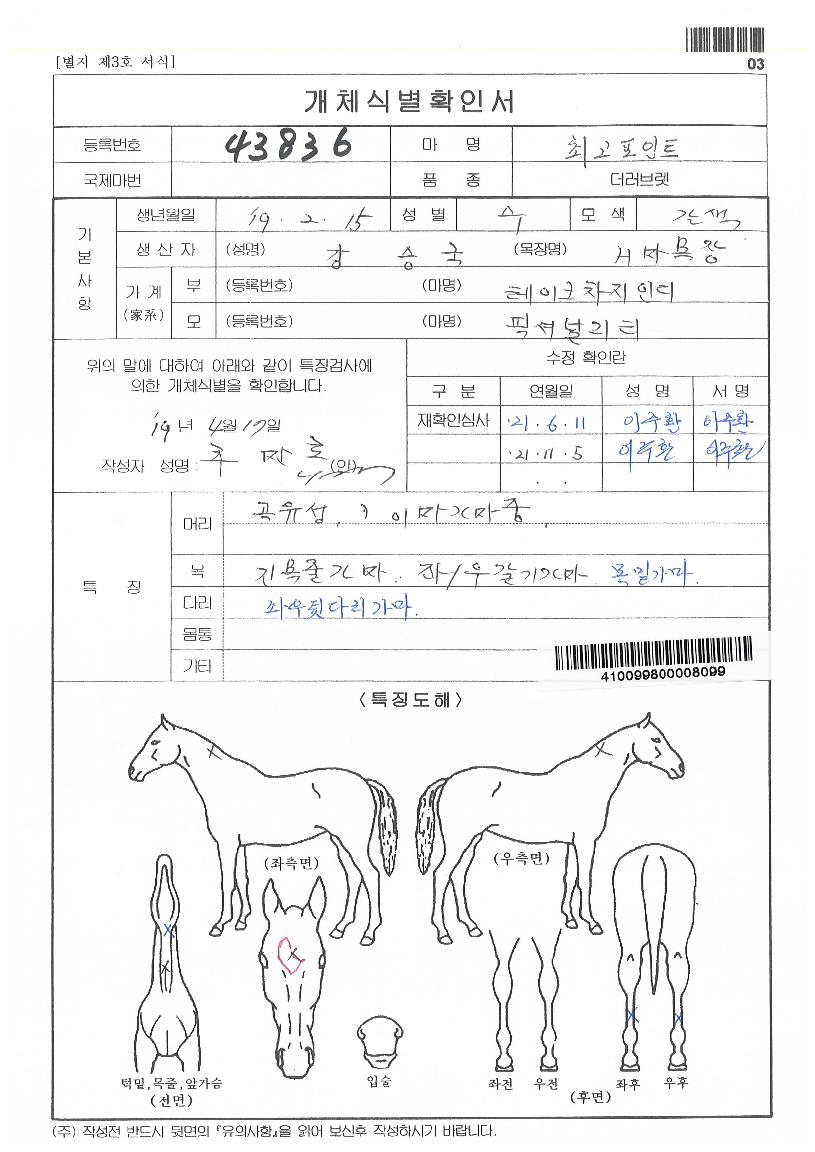 [별지 제3호 서식]
03
개체식별확인서
등록번호 43836 마 명 최고포인트
국제마번 품 종 더러브렛
기본사항
생년월일 '19. 2. 15 성 별 수 모 색 갈색
생 산 자 (성명) 강승국 (목장명) 목장
가 계 (家系)
부 (등록번호) (마명) 테이크차지인디
모 (등록번호) (마명) 픽셔널리티
위의 말에 대하여 아래와 같이 특징검사에
의한 개체식별을 확인합니다.
'19 년 4월 17일
작성자 성명 : 추 만 호 (인)
수정 확인란
구 분 연월일 성 명 서 명
재확인심사 '21. 6. 11 이주환 이주환
'21. 11. 5 이주환 이주환
. .
특 징
머리 곡유성, 이마가마중.
목 지목줄가마. 좌/우갈기가마. 목밑가마.
다리 좌우뒷다리가마.
몸통
기타
410099800008099
<특징도해>
(좌측면) (우측면)
턱밑,목줄,앞가슴
(전면)
입술
좌전 우전 좌후 우후
(후면)
(주) 작성전 반드시 뒷면의 『유의사항』을 읽어 보신후 작성하시기 바랍니다.